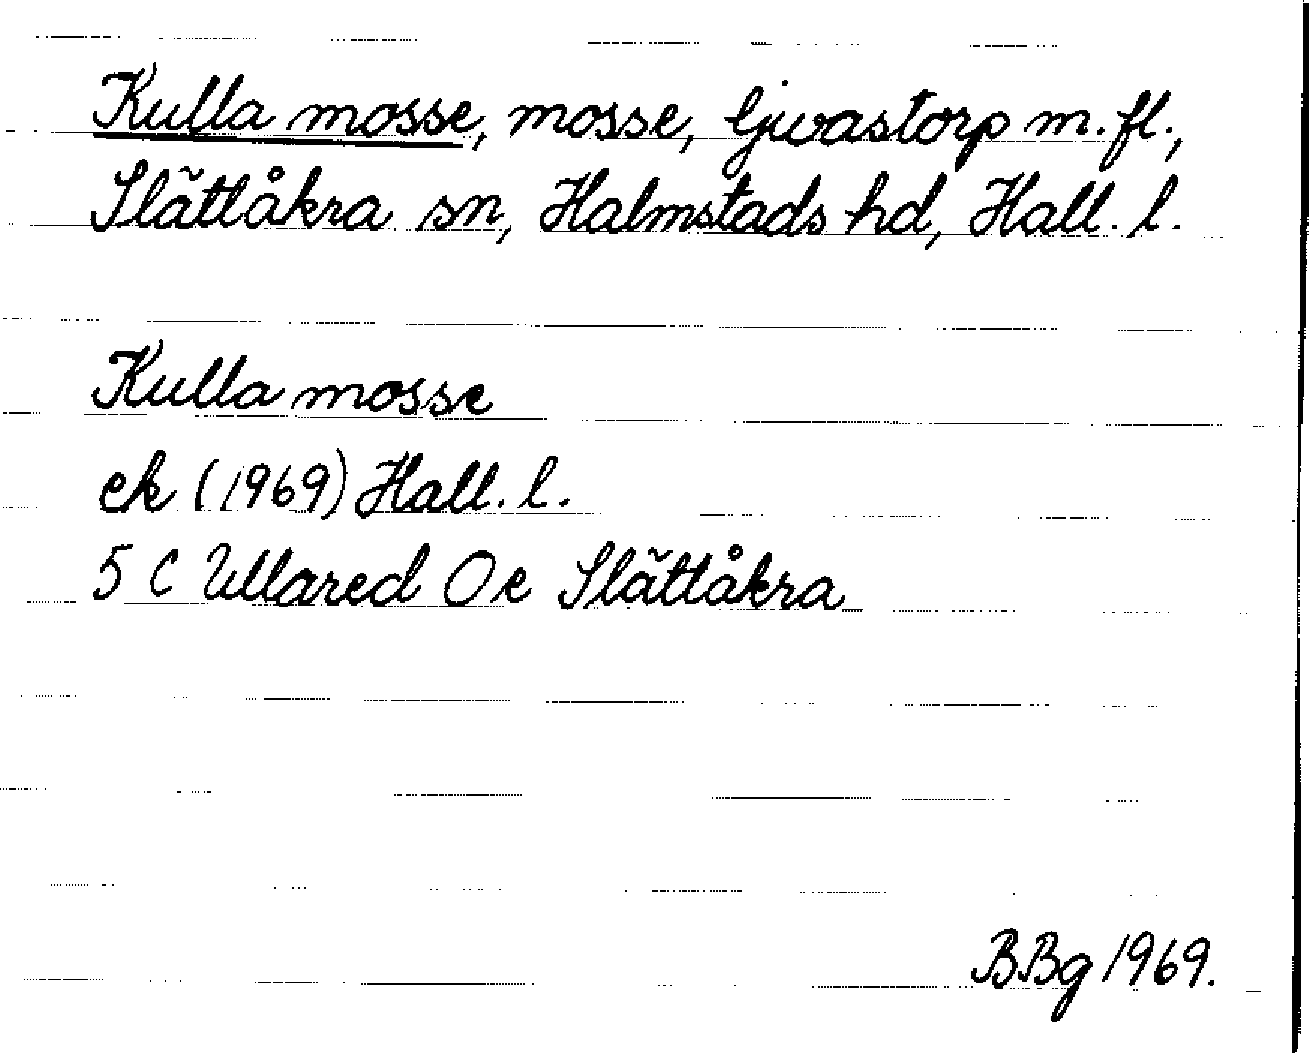 Kulla mosse, mosse, Gjvastorp m. fl.,
Slättåkra sn, Halmstads hd, Hall. l.
Kulla mosse
ek (1969) Hall. l.
5 C Ullared Oe Slättåkra
BBg 1969.